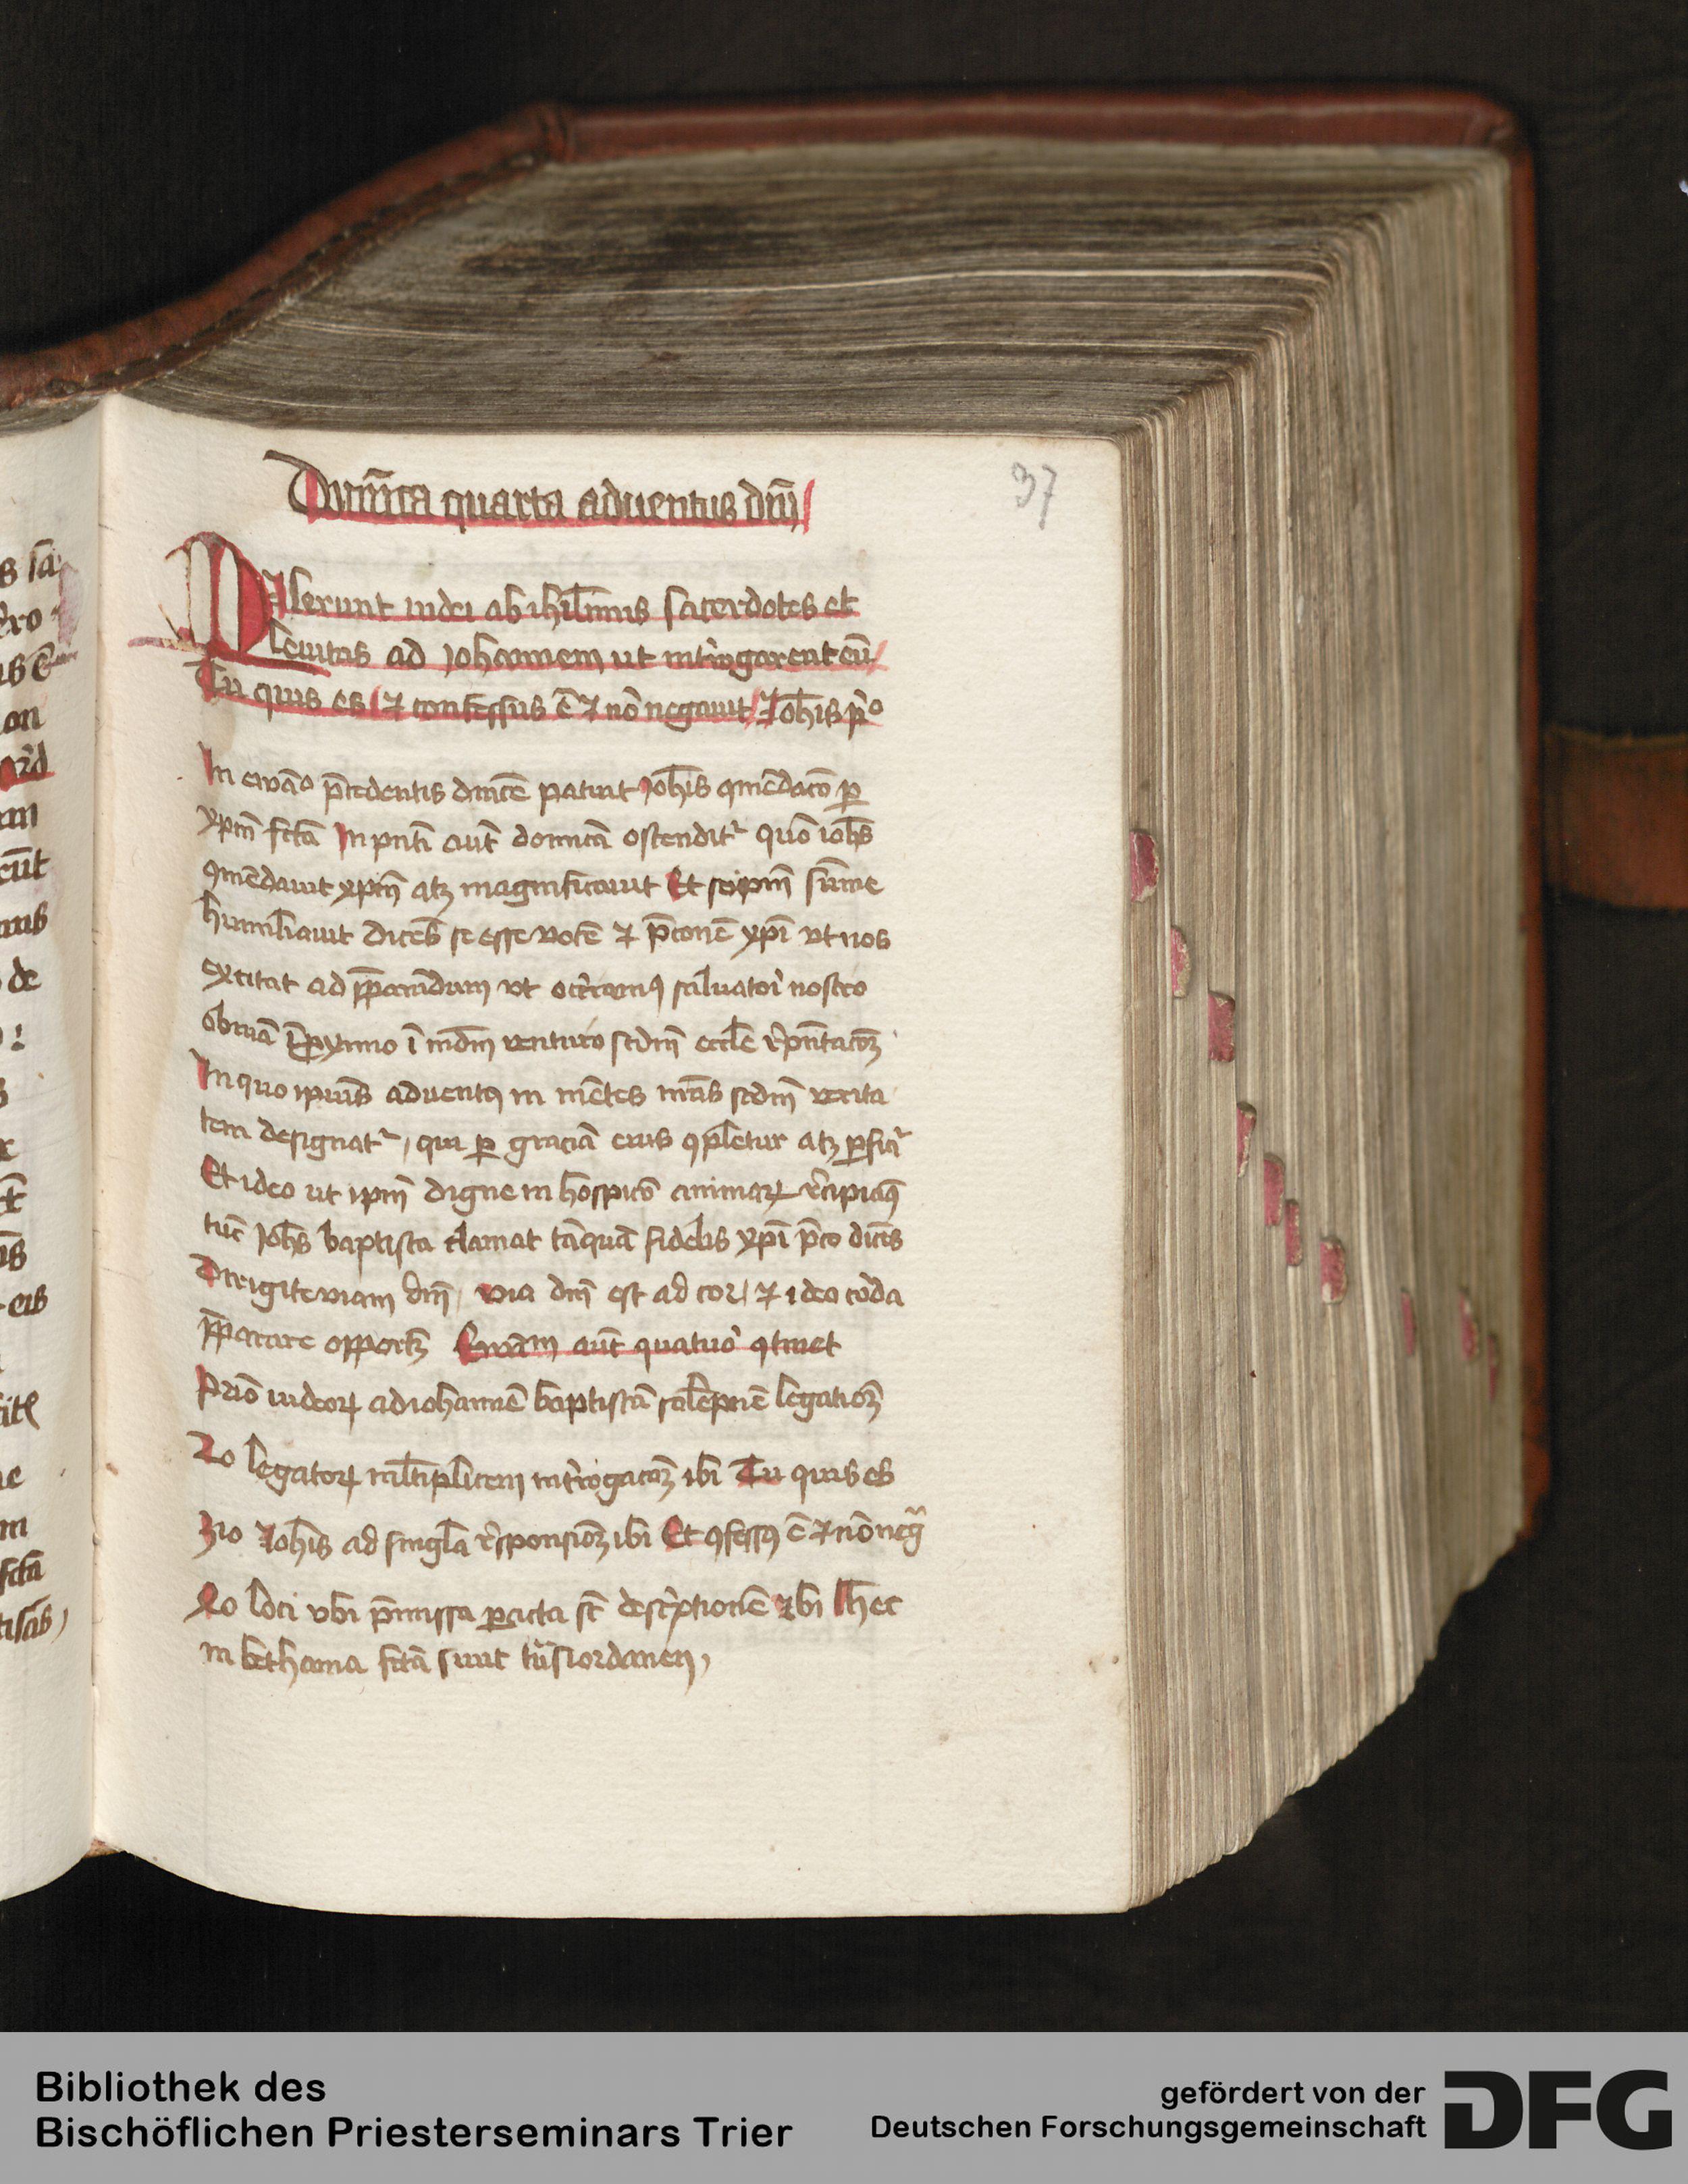 Dominica quarta aduentus dnī
37
Miserunt iudei ab iherl̄imis sacerdotes et
leuitas ad Johannem ut introgarent eū
Tu quis es et confessus ē et nō negauit Johīs pº
In ewāº p̄cedentis dnīce patuit Johīs ꝯmēdacō ꝑ
xpm̄ fctā In pn̄ti aut̄ domicā ostenditr quō ioh̄s
ꝯmēdauit xpm̄ atꝫ magnificauit Et seipm̄ sūme
humiliauit dicēs se esse vocē et p̄conē xpī vt nos
excitat ad p̄parandum vt occramꝰ saluatori nostro
obuiā ī pximo ī mdm̄ venturo scdm̄ eccle rp̄ntacōꝫ
In quo ipius aduentꝰ in mētes nr̄as scdm̄ verita
tem designatr, qui ꝑ graciā eius ꝯpletur atꝫ ꝑficir
Et ideo ut ipm̄ digne in hospicō animaꝝ recipiamꝰ
tūc Joh̄s baptista clamat tāquā fidelis xpī p̄co dicēs
Dirigite viam dnī, via dnī est ad cor, et ideo corda
p̄parare opportꝫ Ewām aut̄ quatuor ꝯtinet
Prīo iudeoꝝ ad iohannē baptistā solēpnē legaciōꝫ
2o legatoꝝ mltiplicem introgacōꝫ ibi Tu quis es
3io Johīs ad singl̄a responsiōꝫ ibi Et ꝯfessꝰ ē et nō neg
4o loci vbi p̄missa ꝑacta st̄ descriptionē ibi hec
in bethania fctā sunt trās iordanen,
s
de
eis
Bibliothek des
Bischöflichen Priesterseminars Trier
gefördert von der
Deutschen Forschungsgemeinschaft
DFG